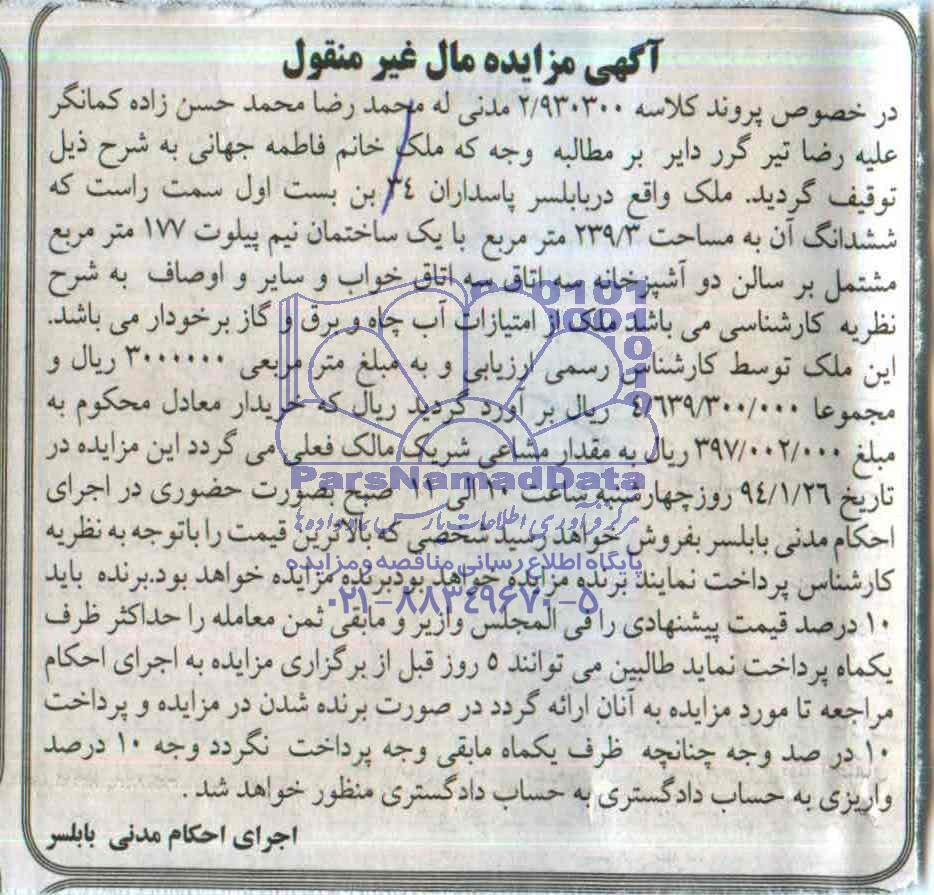 آگهی مزایده مال غیر منقول
در خصوص پروند کلاسه ۲/۹۳۰۳۰۰ مدنی له محمد رضا محمد حسن زاده کمانگر
علیه رضا تیر گرر دایر بر مطالبه وجه که ملک خانم فاطمه جهانی به شرح ذیل
توقیف گردید. ملک واقع دربابلسر پاسداران ۳۴ بن بست اول سمت راست که
ششدانگ آن به مساحت ۲۳۹/۳ متر مربع با یک ساختمان نیم پیلوت ۱۷۷ متر مربع
مشتمل بر سالن دو آشپزخانه سه اتاق سه اتاق خواب و سایر و اوصاف به شرح
نظریه کارشناسی می باشد ملک از امتیازات آب چاه و برق و گاز برخودار می باشد.
این ملک توسط کارشناس رسمی ارزیابی و به مبلغ متر مربعی ۳۰۰۰۰۰۰ ریال و
مجموعا ۴/۶۳۹/۳۰۰/۰۰۰ ریال بر آورد گردید ریال که خریدار معادل محکوم به
مبلغ ۳۹۷/۰۰۲/۰۰۰ ریال به مقدار مشاعی شریک مالک فعلی می گردد این مزایده در
تاریخ ۹۴/۱/۲۶ روز چهارشنبه ساعت ۱۰ الی ۱۱ صبح بصورت حضوری در اجرای
احکام مدنی بابلسر بفروش خواهد رسید شخصی که بالاترین قیمت را باتوجه به نظریه
کارشناس پرداخت نمایند برنده مزایده خواهد بودبرنده مزایده خواهد بود.برنده باید
۱۰ درصد قیمت پیشنهادی را فی المجلس واریز و مابقی ثمن معامله را حداکثر ظرف
یکماه پرداخت نماید طالبین می توانند ۵ روز قبل از برگزاری مزایده به اجرای احکام
مراجعه تا مورد مزایده به آنان ارائه گردد در صورت برنده شدن در مزایده و پرداخت
۱۰ در صد وجه چنانچه ظرف یکماه مابقی وجه پرداخت نگردد وجه ۱۰ درصد
واریزی به حساب دادگستری به حساب دادگستری منظور خواهد شد .
اجرای احکام مدنی بابلسر
ParsNamadData
پایگاه اطلاع رسانی مناقصه و مزایده
۰۲۱-۸۸۳۴۹۶۷۰-۵